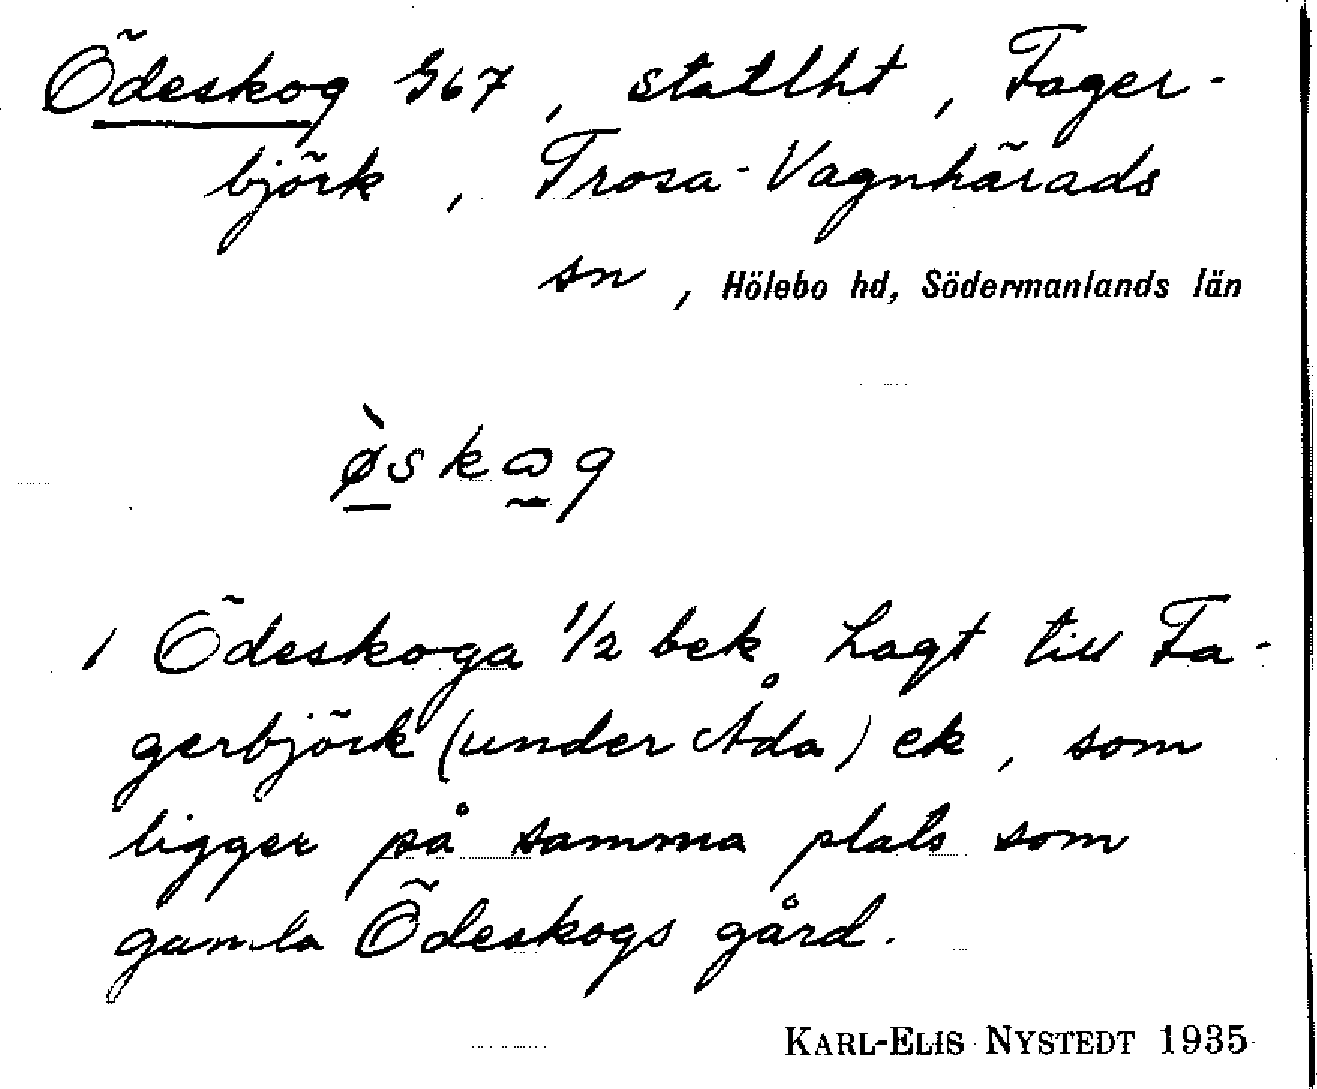 Ödeskog G67, statlht, Fager-
björk, Trosa-Vagnhärads
sn, Hölebo hd, Södermanlands län
ø̀skɷg
/ Ödeskoga 1/2 bek Lagt till Fa-
gerbjörk (under Åda) ek, som
ligger på samma plats som
gamla Ödeskogs gård.
KARL-ELIS NYSTEDT 1935